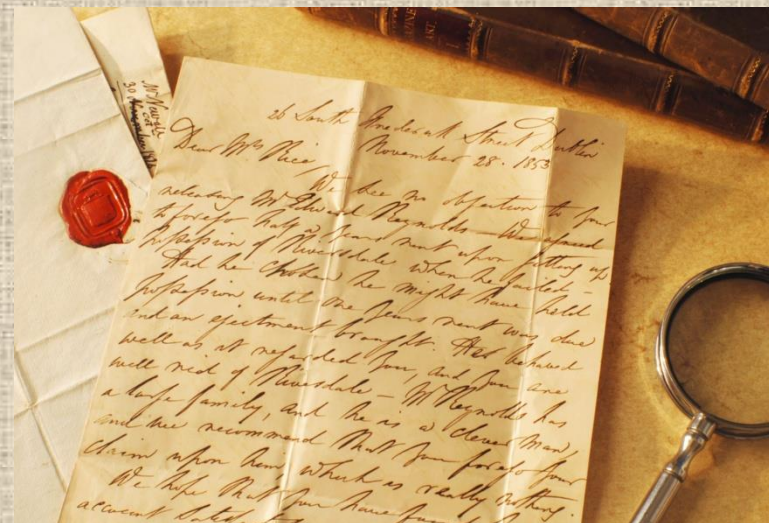 26 South Frederick Street Dublin
November 28. 1853
Dear Mrs Rice,
We see no objection to your
releasing Mr Edward Reynolds – We agreed
to forego half a years rent upon getting up
possession of Riversdale when he failed –
Had he chosen he might have held
possession until one years rent was due
and an ejectment brought. He behaved
well as it regarded you, and you are
well rid of Riversdale – Mr Reynolds has
a large family, and he is a clever man,
and we recommend that you forego your
claim upon him which is really nothing.
We hope that you have
account
30